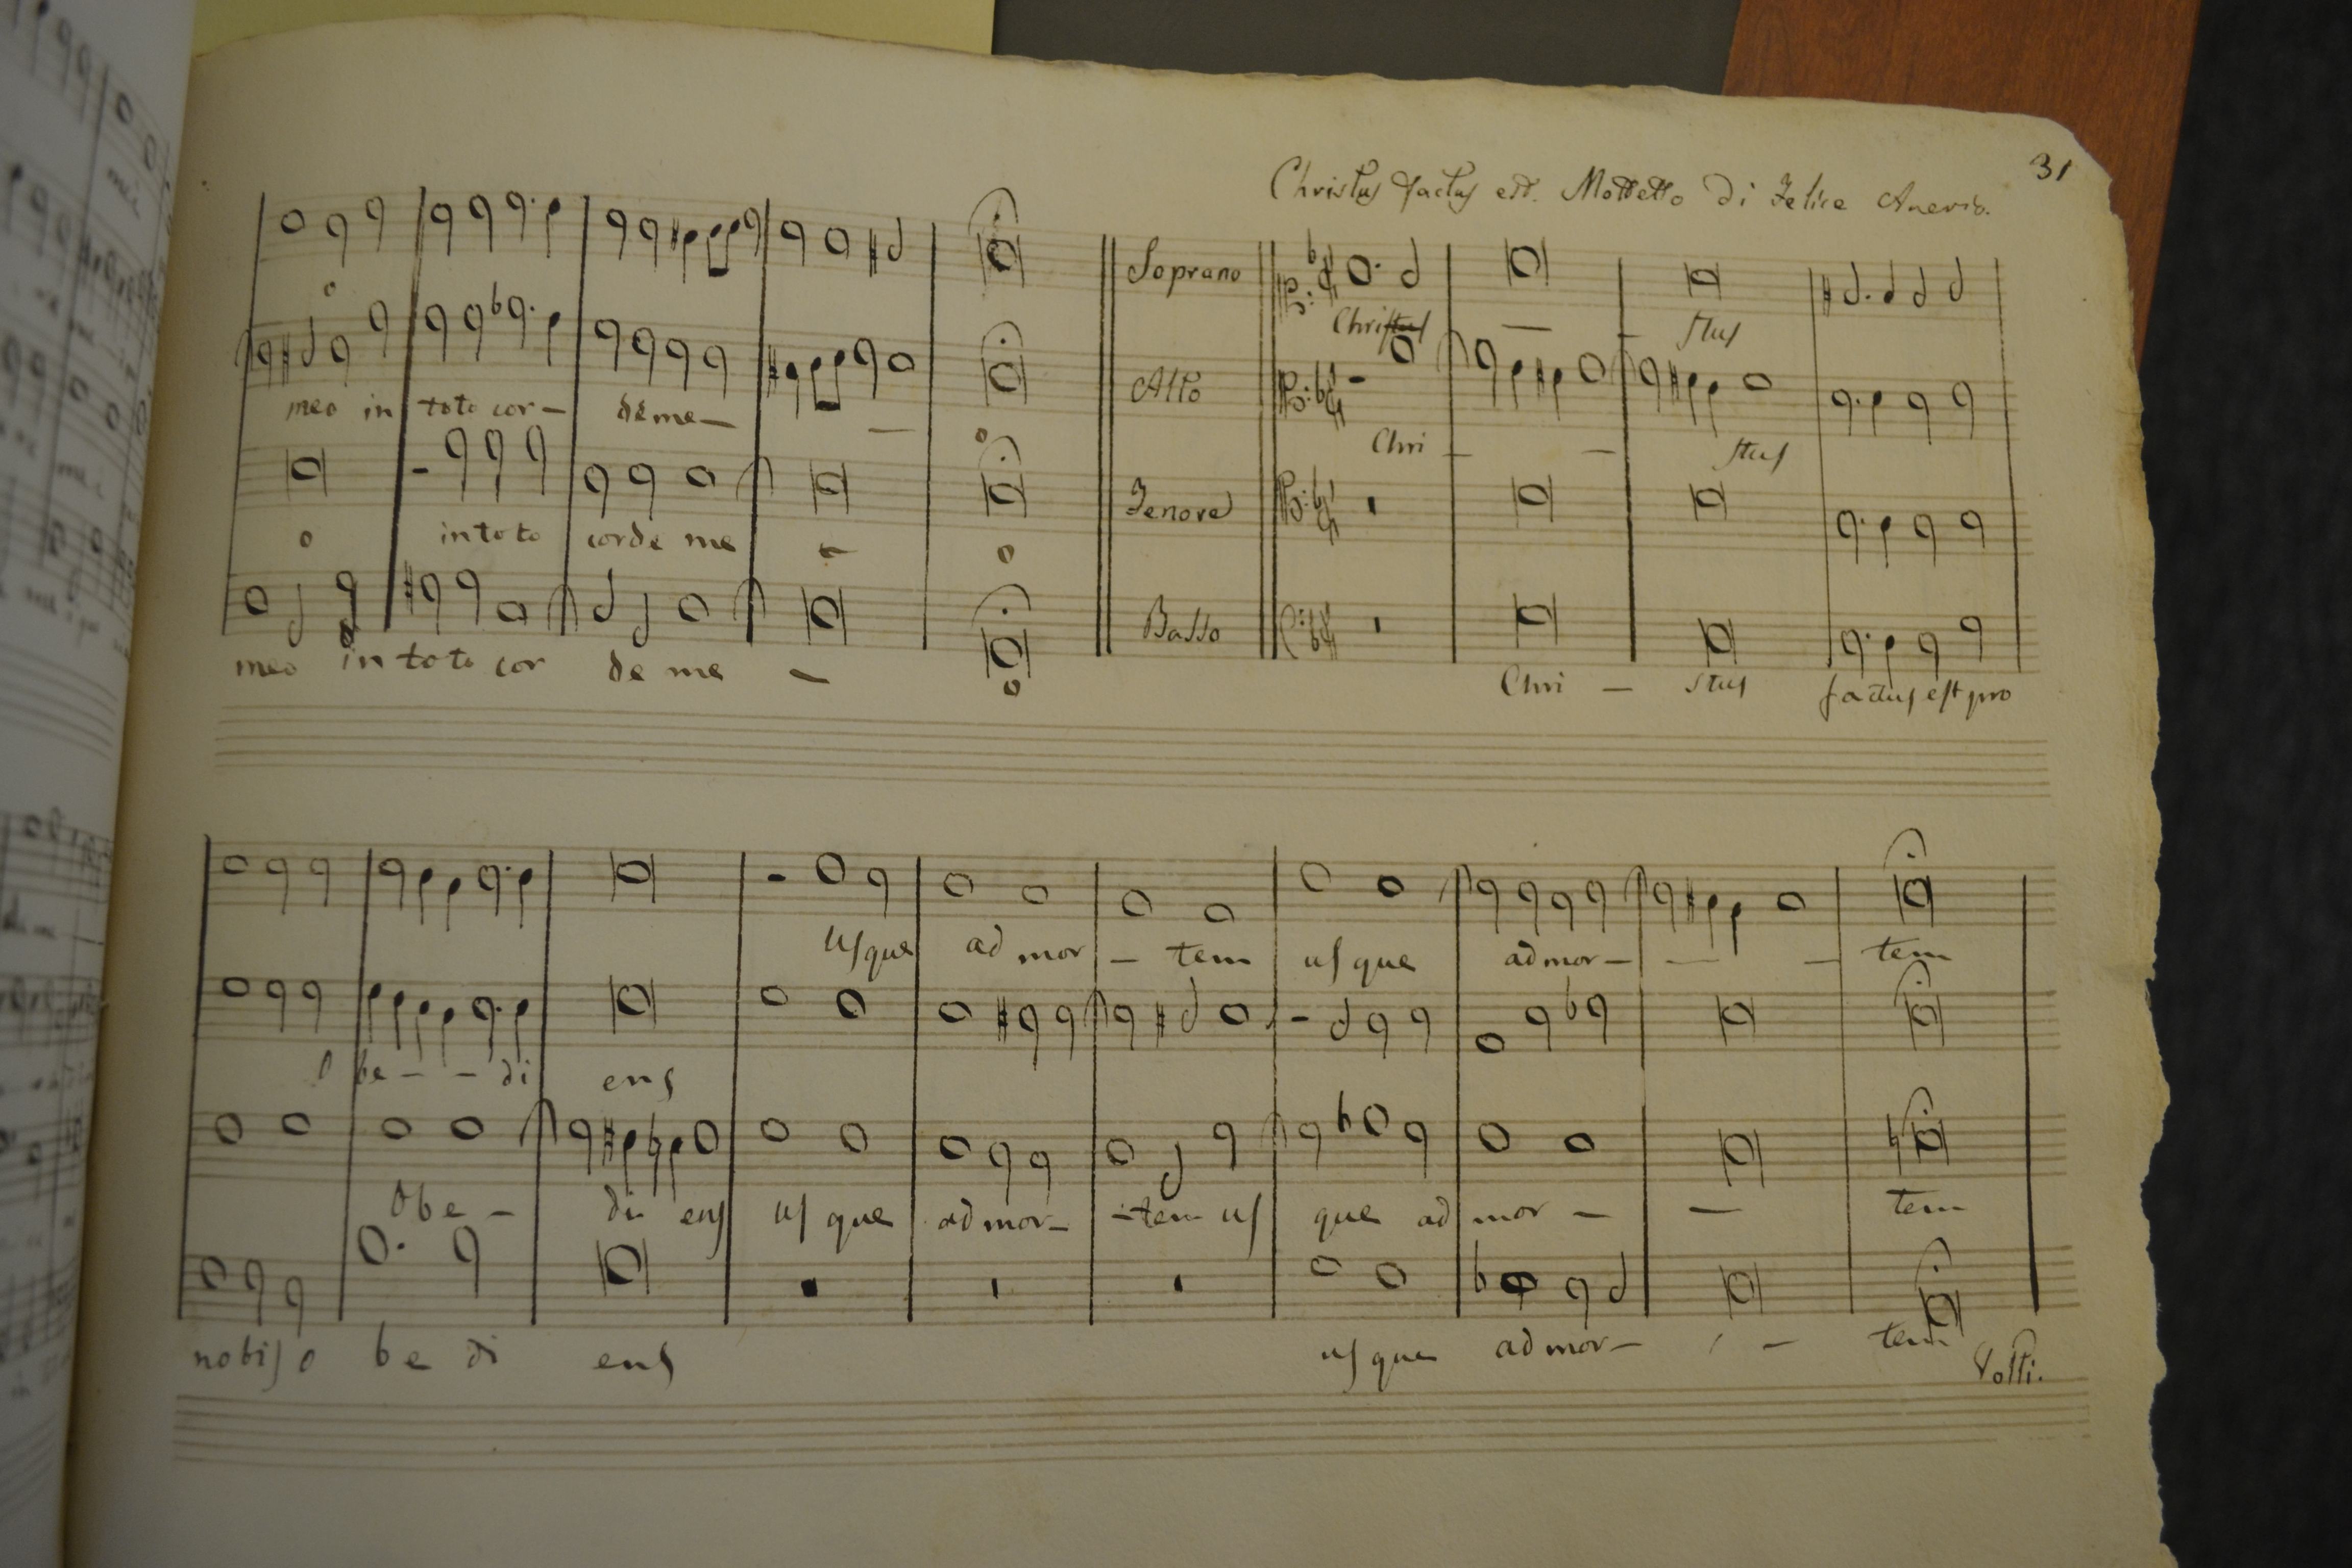 31
Christus factus est. Mottetto di Felice Anerio.
Soprano
Christus — - stus
o
meo in toto cor- de me- —
Alto
Chri - - stus
o
in toto corde me - o
Tenore
o
meo in toto cor de me - o
Basso
Chri - stus factus est pro
usque ad mor - tem usque ad mor- — - tem
o be - - di ens
Obe - di ens us que ad mor- - tem us que ad mor - — tem
nobis o be di ens usque ad mor- - - tem
Volti.